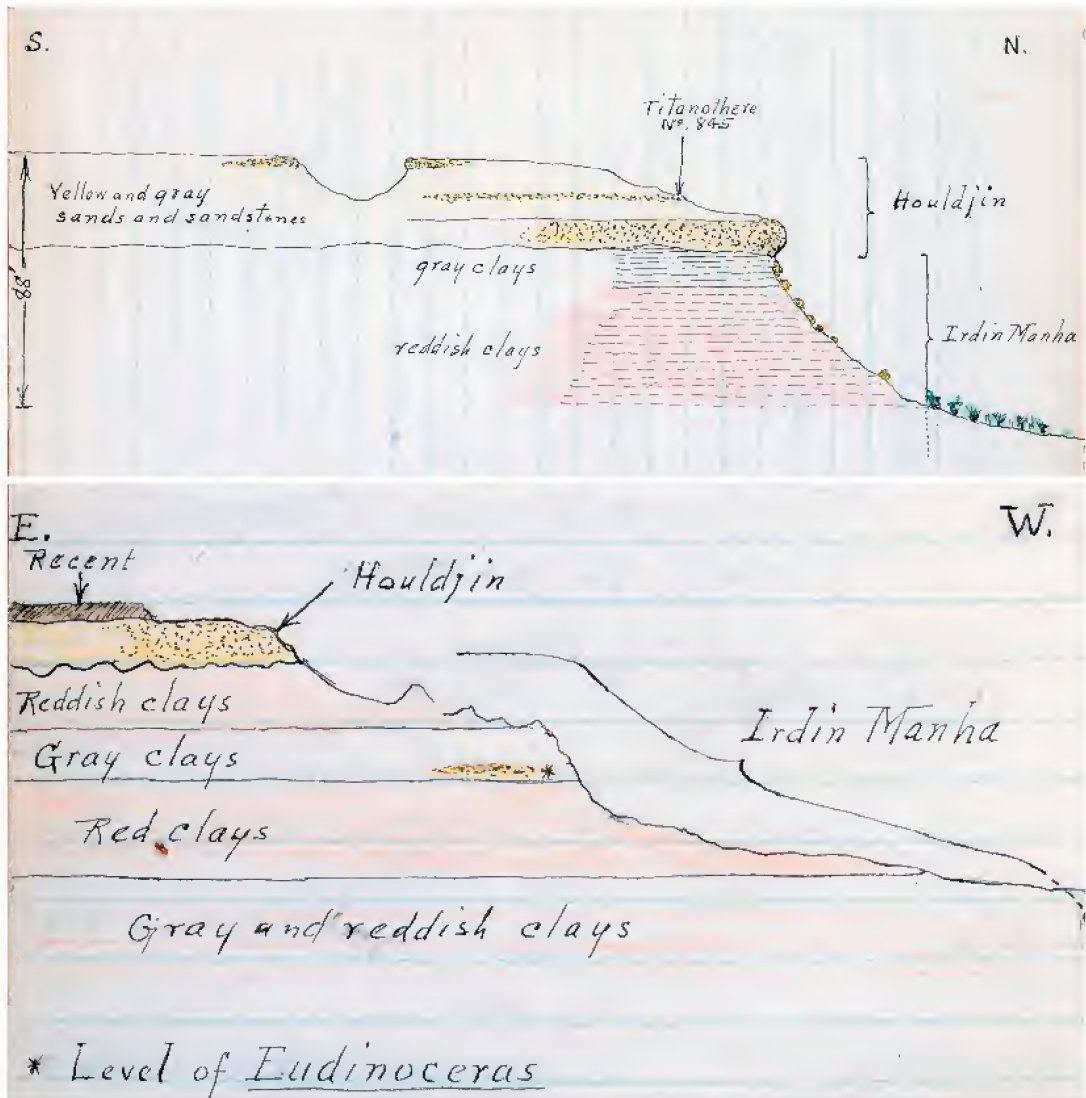 S.
N.
Titanothere
Nº. 845
Yellow and gray
sands and sandstones
Houldjin
88'
gray clays
reddish clays
Irdin Manha
E.
W.
Recent
Houldjin
Reddish clays
Gray clays
Irdin Manha
Red clays
Gray and reddish clays
* Level of Eudinoceras